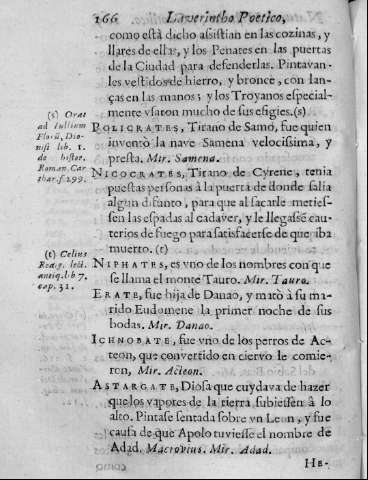 166 Laverintho Poetico,
como està dicho assistian en las cozinas, y
llares de ellas, y los Penates en las puertas
de la Ciudad para defenderlas. Pintavan-
les vestidos de hierro, y bronce, con lan-
ças en las manos; y los Troyanos especial-
mente vsaron mucho de sus efigies.(s)
(s) Orat
ad Iullium
Florū, Dio-
nisi lib. 1.
de histor.
Roman. Car
thar. f. 299.
POLICRATES, Tirano de Samo, fue quien
inventò la nave Samena velocissima, y
presta. Mir. Samena.
NICOCRATES, Tirano de Cyrene, tenia
puestas personas à la puerta de donde salia
algun difunto, para que al sacarle meties-
sen las espadas al cadaver, y le llegassē cau-
terios de fuego para satisfacerse de que iba
muerto. (t)
(t) Celius
Rodig. lect.
antiq. lib 7.
cap. 31.
NIPHATES, es vno de los nombres con que
se llama el monte Tauro. Mir. Tauro.
ERATE, fue hija de Danao, y matò à su ma-
rido Eudomene la primer noche de sus
bodas. Mir. Danao.
ICHNOBATE, fue vno de los perros de Ac-
teon, que convertido en ciervo le comie-
ron, Mir. Acteon.
ASTARGATE, Diosa que cuydava de hazer
que los vapores de la tierra subiessen à lo
alto. Pintase sentada sobre vn Leon, y fue
causa de que Apolo tuviesse el nombre de
Adad. Macrovius. Mir. Adad.
HE-